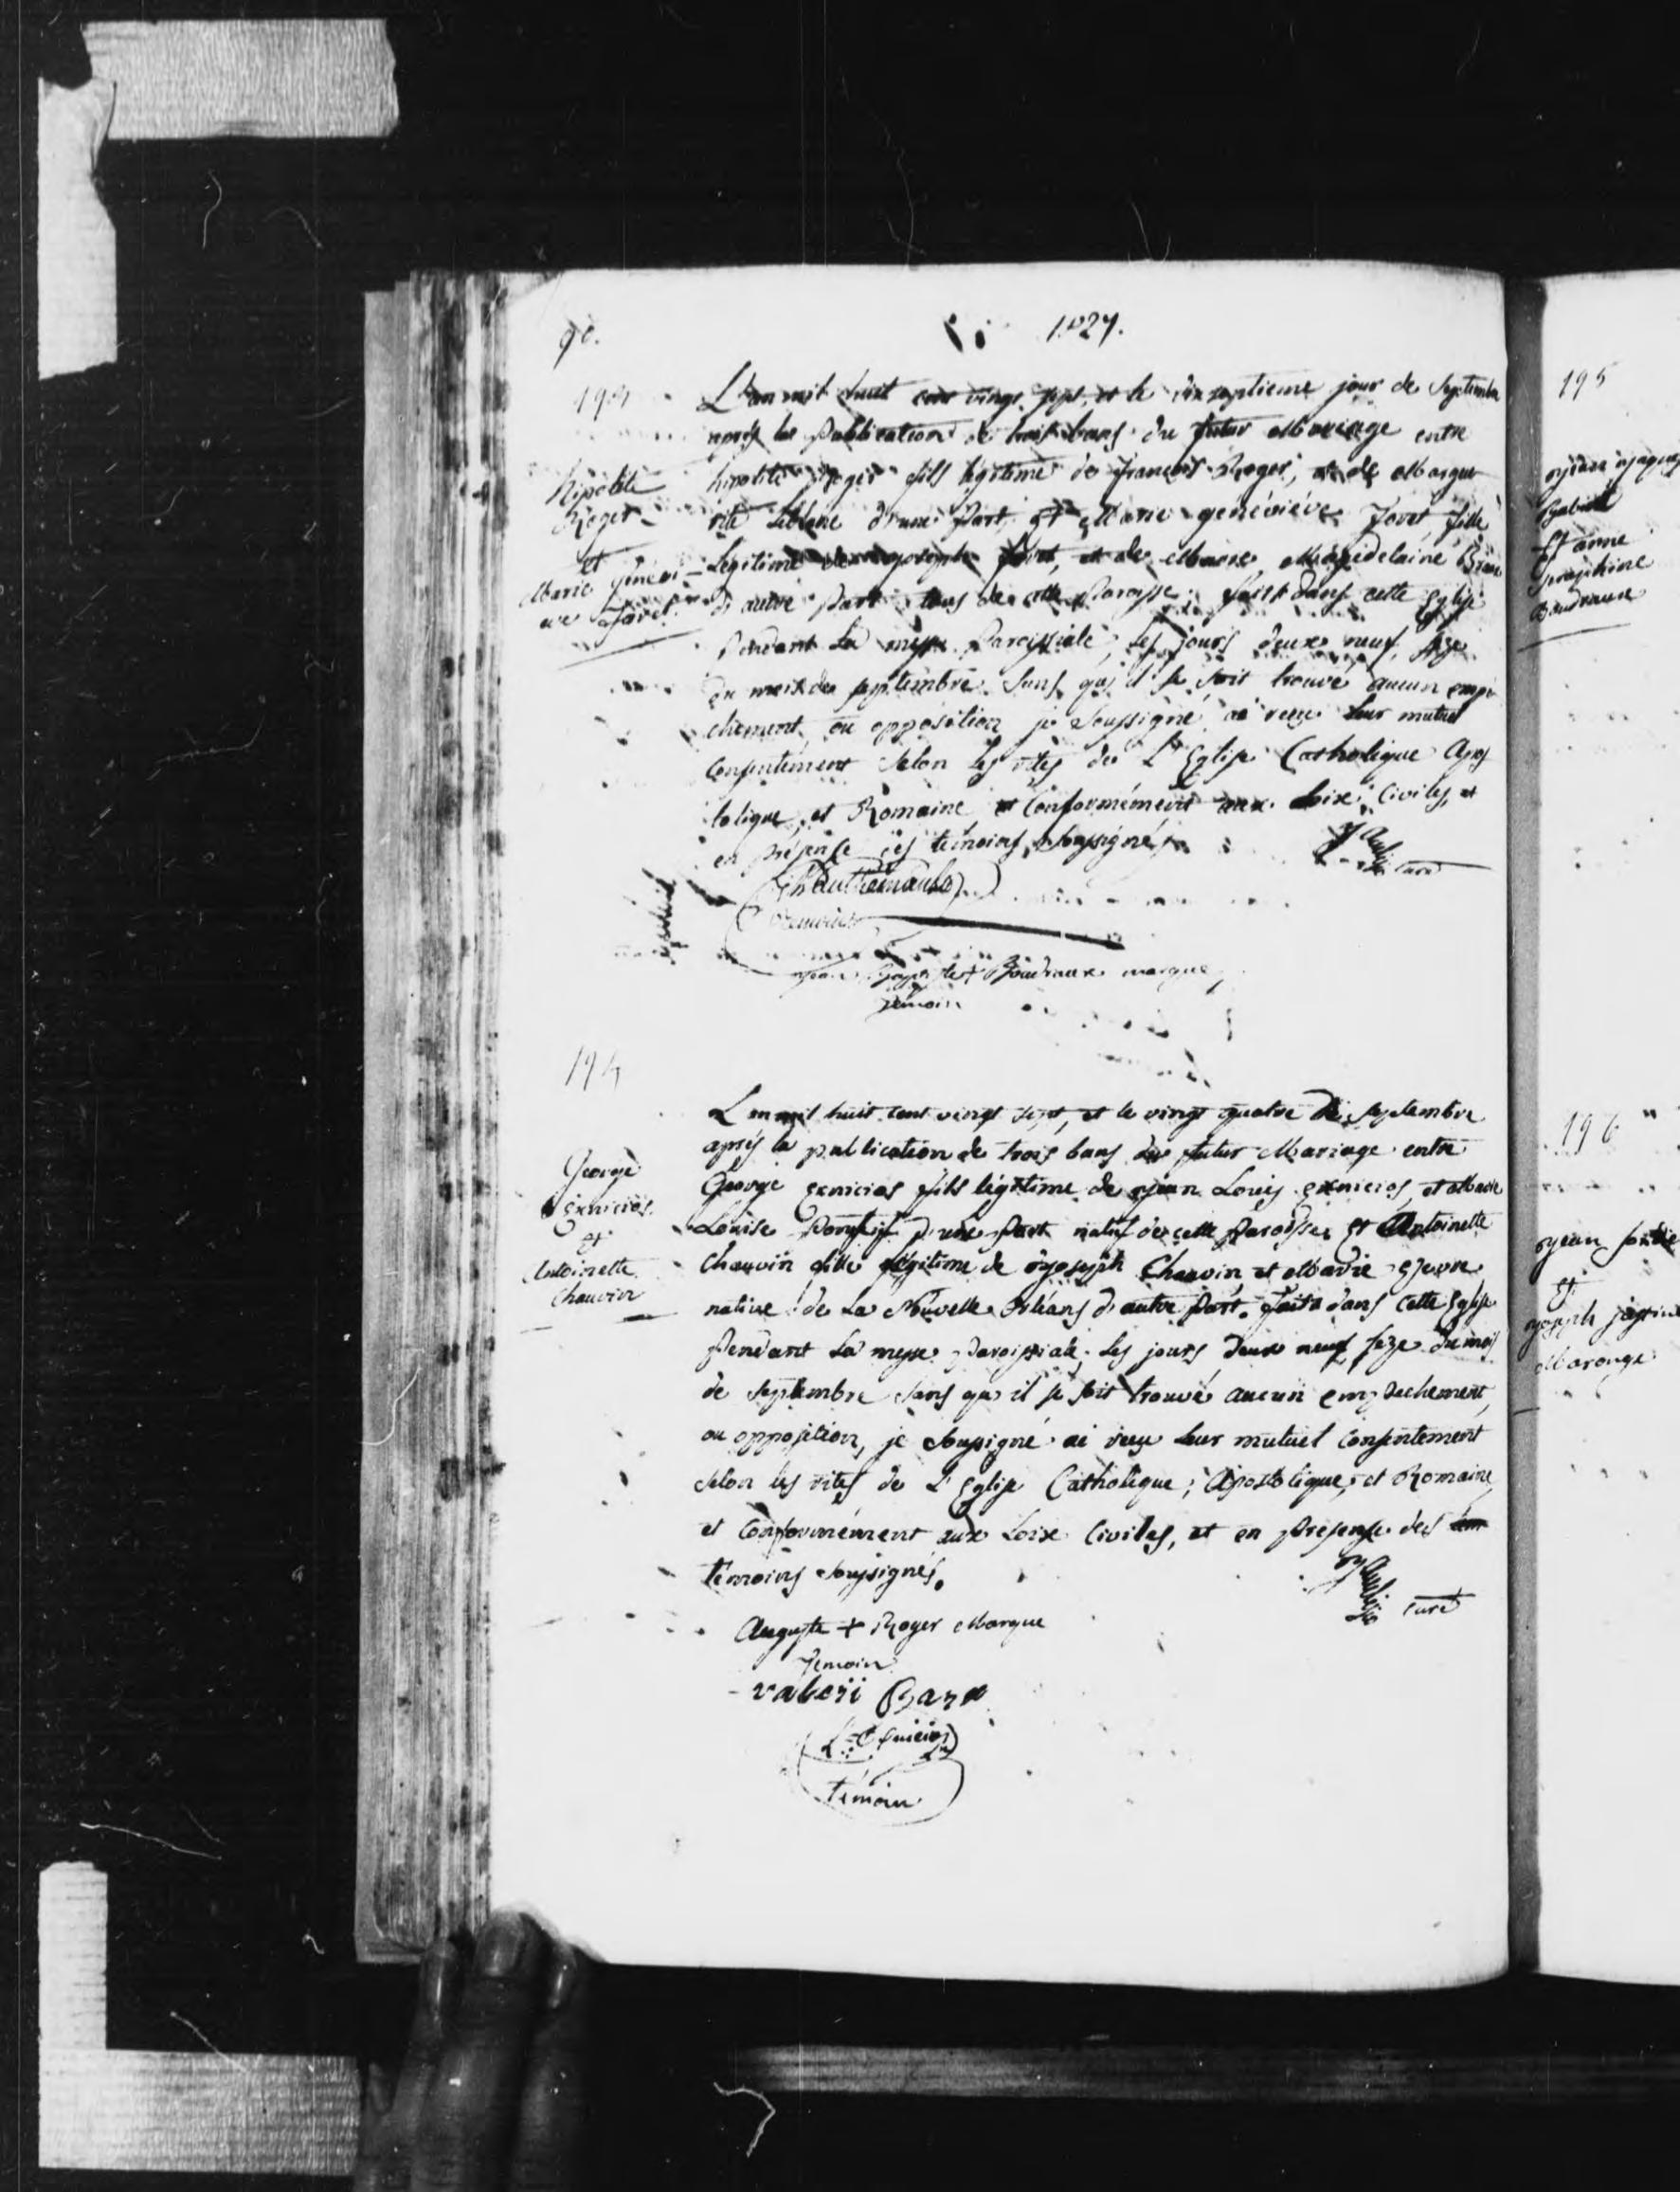 90. 1827.
L'an mil huit cent vingt sept, et le dix septieme jour de Septembre
après la Publication de trois bans du futur Mariage entre
hipolite Roger fils légitime de françois Roger, et de Margue
rite Leblanc d'une Part, Et Marie geneviéve Foret fille
Légitime de joseph foret, et de Marie Magdelaine
d'autre Part tous de cette Paroisse, fait dans cette Eglise
Pendant La messe Paroissiale, les jours deux neuf, seze
du mois de septembre Sans qu'il se soit trouvé aucun empé
chement ou opposition je soussigné ai reçu leur mutuel
consentement Selon les rites de L'Eglise Catholique Apos
tolique, et Romaine et Conformément aux Loix Civiles, et
en présense des témoins soussignés
curé
Boudreaux marque
Temoin
Hipolite
Roger
et
Marie Genevi-
eve Foret
194
L'an mil huit cent vingt sept, et le vingt quatre de septembre
aprés la publication de trois bans du futur Mariage entre
George Exnicios fils légitime de jean Louis exnicios, et Marie
Louise d'une Part natif de cette Paroisse, Et Antoinette
Chauvin fille légitime de joseph Chauvin et Marie
native de La Nouvelle Orléans d'autre Part. fait dans Cette Eglise
Pendant La messe Paroissiale, les jours deux neuf seze du mois
de Septembre sans qu'il se soit trouvé aucun empechement,
ou opposition, je soussigné ai reçu leur mutuel consentement
selon les rites de L'Eglise Catholique, Apostolique, et Romaine,
et Conformément aux Loix Civiles, et en presense des tem
témoins soussignés.
curé
Auguste + Roger Marque
Temoin
valeri
L. Exnicios
témoin
George
Exnicios
et
Antoinette
Chauvin
195
Et anne
Josephine
Boudreaux
196
jean
Et
joseph